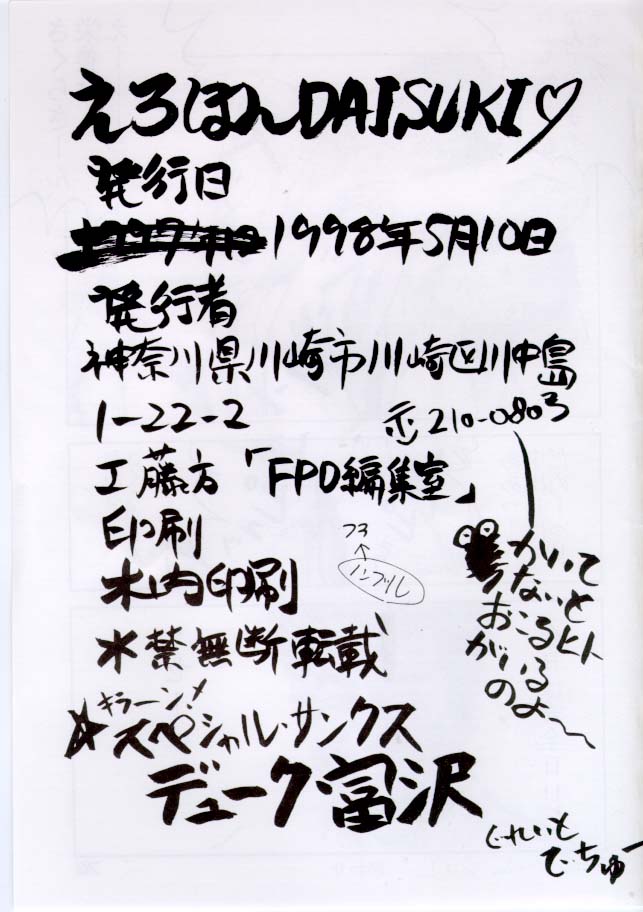 えろほんDAISUKI♡
発行日
1998年5月10日
発行者
神奈川県川崎市川崎区川中島
1-22-2
〒210-0803
工藤方「FPO編集室」
印刷
木内印刷
禁無断転載
かいて
ないと
おこるヒト
がいる
のよ〜
ノンブル
キラーン!
☆スペシャル・サンクス
デューク・富沢